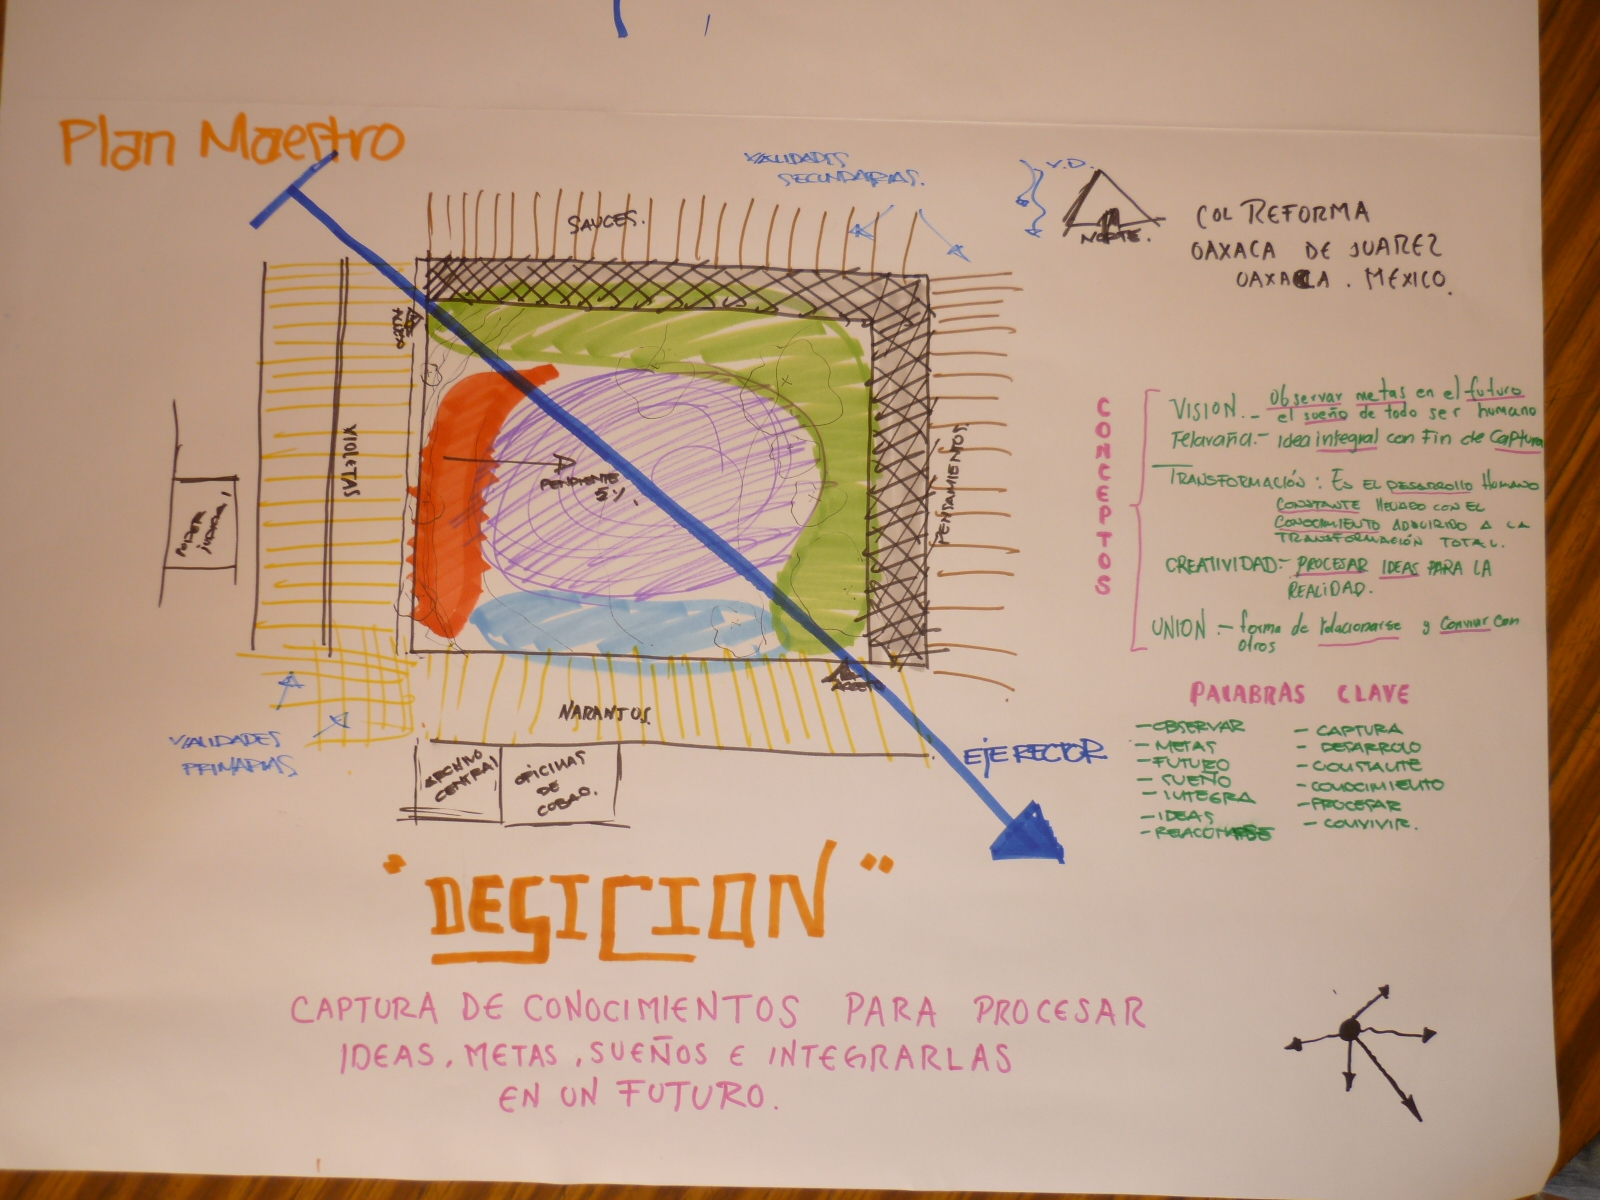 Plan Maestro
VIALIDADES
SECUNDARIAS.
V.D.
NORTE.
COL REFORMA
OAXACA DE JUAREZ
OAXACA. MEXICO.
SAUCES.
VIOLETAS
PENSAMIENTOS
PENDIENTE
5%.
PODER
JUDICIAL
NARANJOS
ACCESO
ARCHIVO
CENTRAL
OFICINAS
DE
COBAO.
VIALIDADES
PRIMARIAS
EJE RECTOR
CONCEPTOS
VISION._ Observar metas en el futuro
el sueño de todo ser humano
Telaraña.- idea integral con fin de captura
TRANSFORMACIÓN: ES EL DESARROLLO HUMANO
CONSTANTE LLEVADO CON EL
CONOCIMIENTO ADQUIRIDO A LA
TRANSFORMACIÓN TOTAL.
CREATIVIDAD:- PROCESAR IDEAS PARA LA
REALIDAD.
UNION:- forma de relacionarse y convivir con
otros
PALABRAS CLAVE
-OBSERVAR
-METAS
-FUTURO
-SUEÑO
-INTEGRA
-IDEAS
-CAPTURA
-DESARROLO
-CONSTANTE
-CONOCIMIENTO
-PROCESAR
-CONVIVIR.
"DESICION"
CAPTURA DE CONOCIMIENTOS PARA PROCESAR
IDEAS, METAS, SUEÑOS E INTEGRARLAS
EN UN FUTURO.